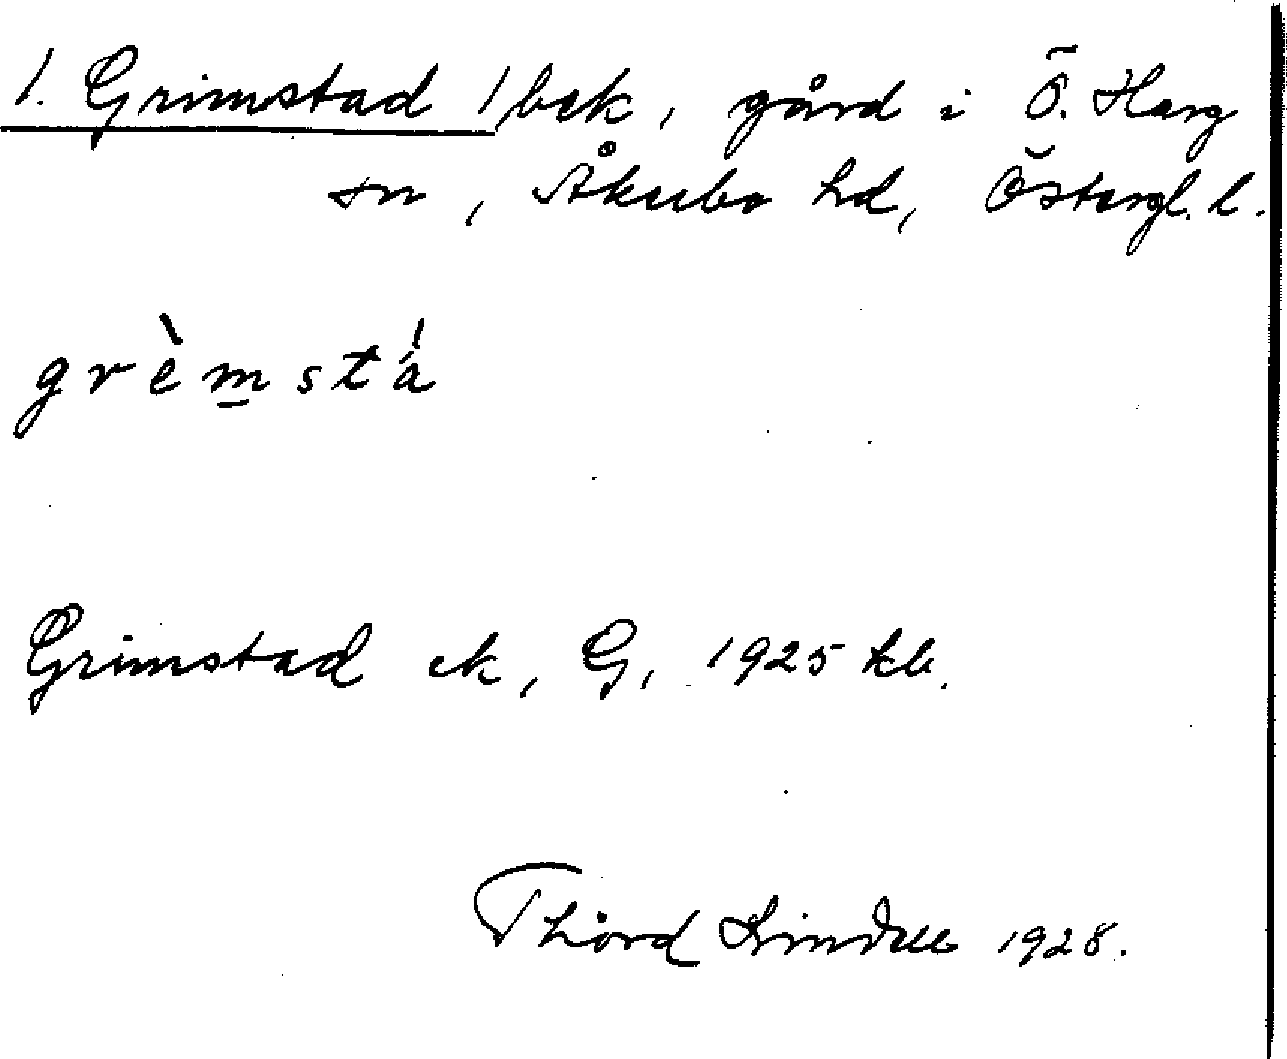 1. Grimstad 1/bek, gård i Ö. Harg
sn, Åkerbo hd, Östergl. l.
grèmstá
Grimstad ek, G, 1925 kb.
Thord Lindell 1928.